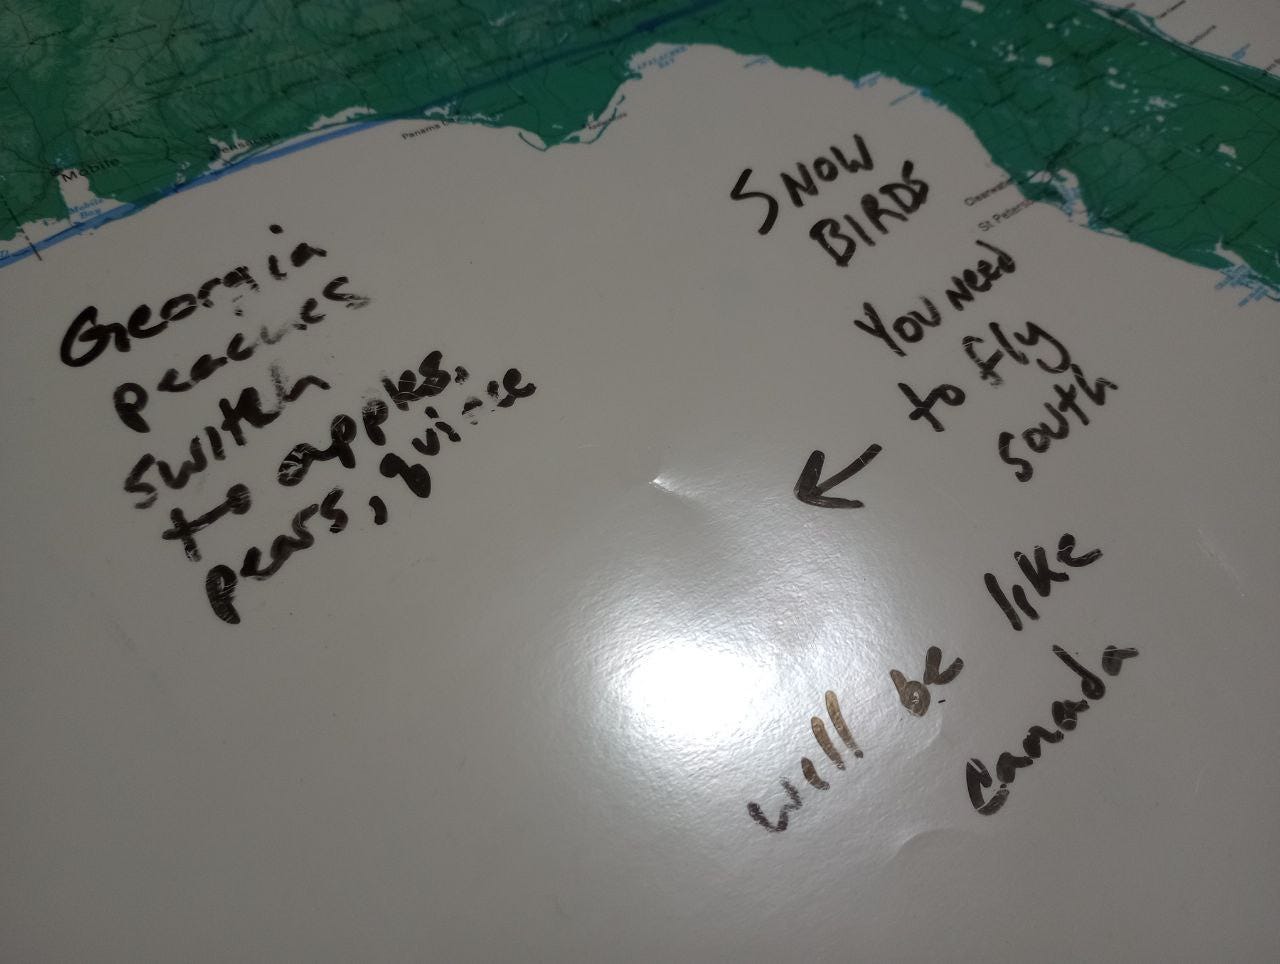 APALACHEE
BAY
Mobile
Mobile
Bay
Pensacola
Panama
Clearwater
St Peters
Georgia
peaches
switch
to apples,
pears, quince
SNOW
BIRDS
You Need
to fly
south
will be like
Canada